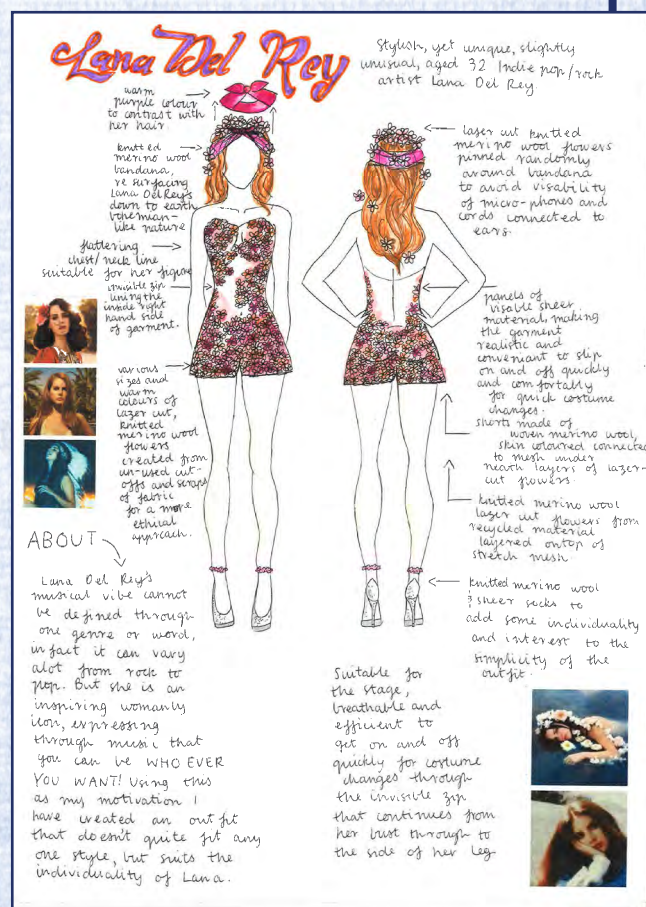 Lana Del Rey
Stylish, yet unique, slightly
unusual, aged 32 Indie pop/rock
artist Lana Del Rey.
warm
purple colour
to contrast with
her hair.
knitted
merino wool
bandana,
re surfacing
Lana Del Rey's
down to earth
bohemian-
like nature
flattering
chest/neck line
suitable for her figure
invisible zip
lining the
inside right
hand side
of garment.
various
sizes and
warm
colours of
lazer cut,
knitted
merino wool
flowers
created from
un-used cut-
offs and scraps
of fabric
for a more
ethical
approach.
lazer cut knitted
merino wool flowers
pinned randomly
around bandana
to avoid visability
of micro-phones and
cords connected to
ears.
panels of
visable sheer
material, making
the garment
realistic and
conveniant to slip
on and off quickly
and comfortably
for quick costume
changes.
shorts made of
woven merino wool,
skin coloured connected
to mesh under
neath layers of lazer-
cut flowers.
knitted merino wool
lazer cut flowers from
recycled material
layered ontop of
stretch mesh
knitted merino wool
& sheer socks to
add some individuality
and interest to the
simplicity of the
outfit.
ABOUT
Lana Del Rey's
musical vibe cannot
be defined through
one genre or word,
infact it can vary
alot from rock to
pop. But she is an
inspiring womanly
icon, expressing
through music that
you can be WHO EVER
YOU WANT! Using this
as my motivation I
have created an outfit
that doesn't quite fit any
one style, but suits the
individuality of Lana.
Suitable for
the stage,
breathable and
efficient to
get on and off
quickly for costume
changes through
the invisible zip
that continues from
her bust through to
the side of her leg